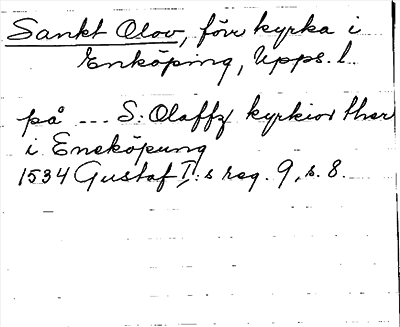 Sankt Olov, förr kyrka i
Enköping, Upps. l.
på --- S: Olaffz kyrkior ther
i Eneköpung
1534 Gustaf I:s reg. 9, s. 8.